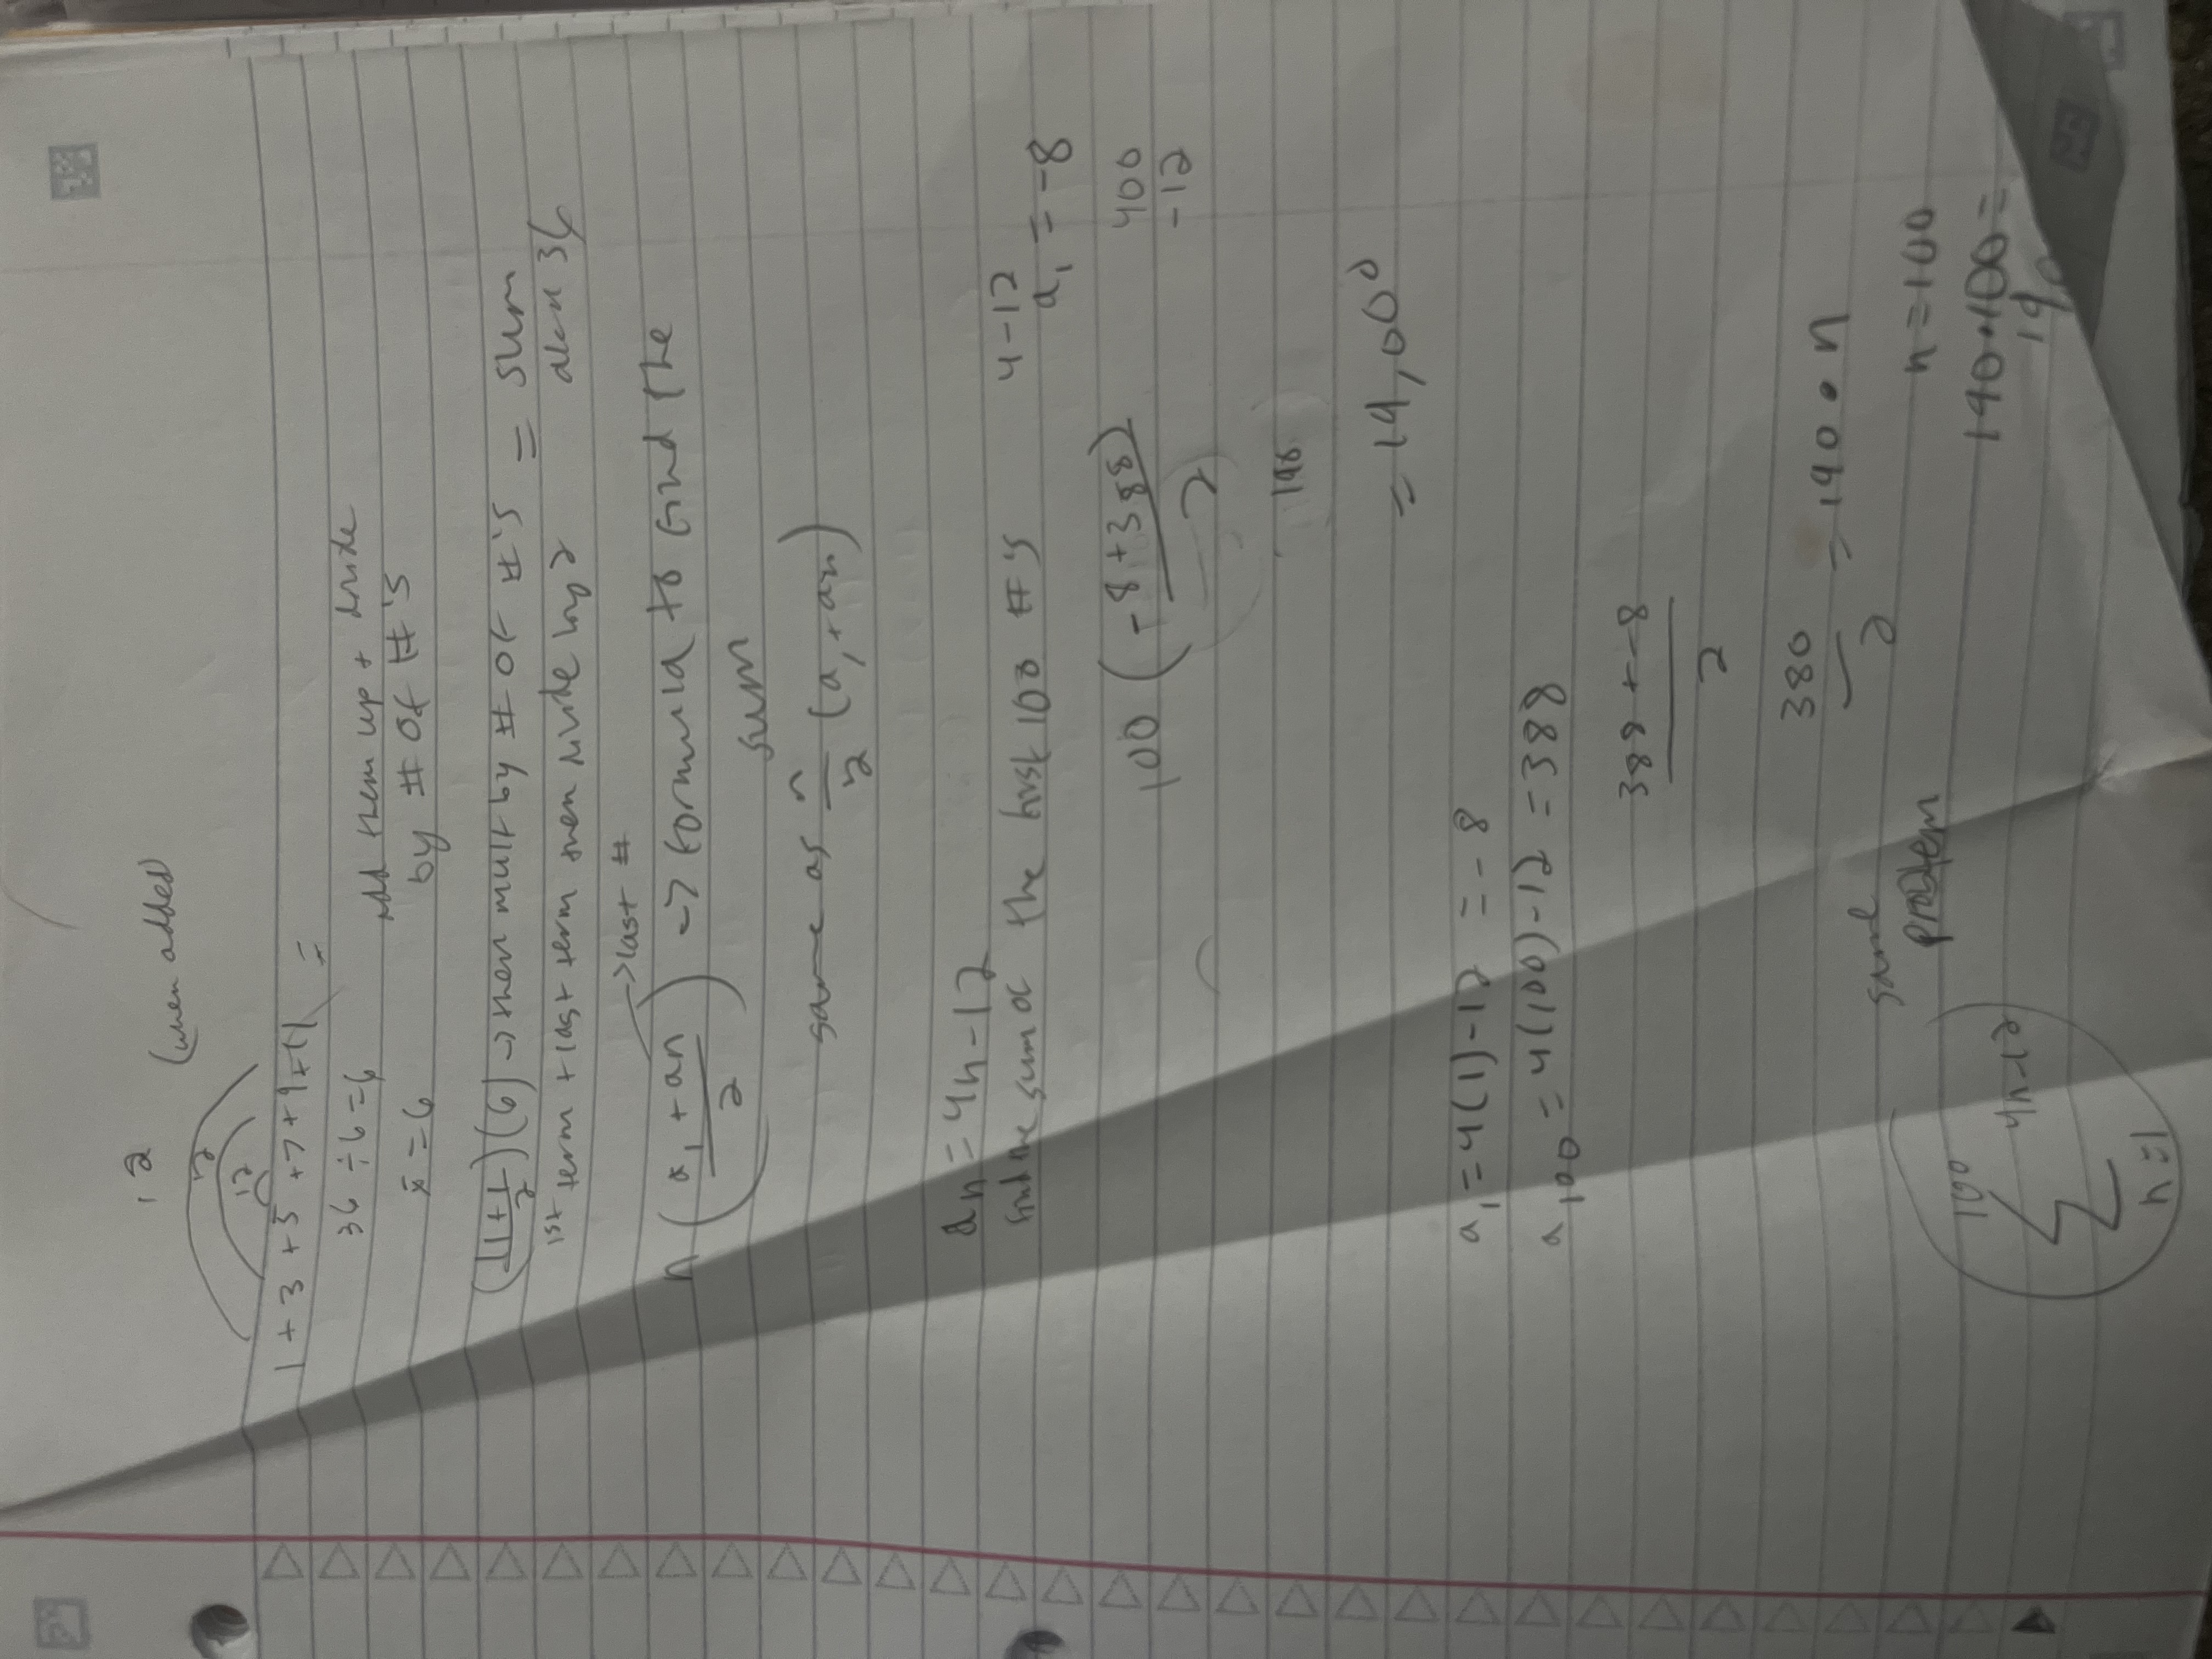 12
(when added)
12
12
1 + 3 + 5 + 7 + 9 + 11 =
36 ÷ 6 = 6
add them up + divide
x̄ = 6
by # of #'s
(11+1/2)(6) → then mult by # of #'s = sum
1st term + last term then divide by 2
36
→ last #
n(a₁ + an/2) → formula to find the
sum
same as n/2 (a₁ + an)
an = 4n - 12
find the sum of the first 100 #'s
4 - 12
a₁ = -8
100 (-8 + 388/2)
400
-12
190
= 19,000
a₁ = 4(1) - 12 = -8
a₁₀₀ = 4(100) - 12 = 388
388 + -8
2
380/2 = 190 • n
same
problem
n = 100
190•100 =
19
100
Σ 4n-12
n=1